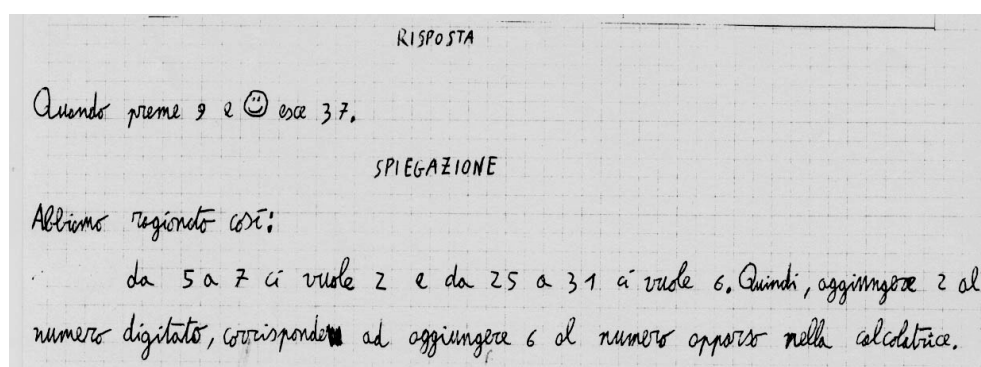 RISPOSTA
Quando preme 9 e ☺ esce 37.
SPIEGAZIONE
Abbiamo ragionato così:
da 5 a 7 ci vuole 2 e da 25 a 31 ci vuole 6. Quindi, aggiungere 2 al
numero digitato, corrisponde ad aggiungere 6 al numero apparso nella calcolatrice.